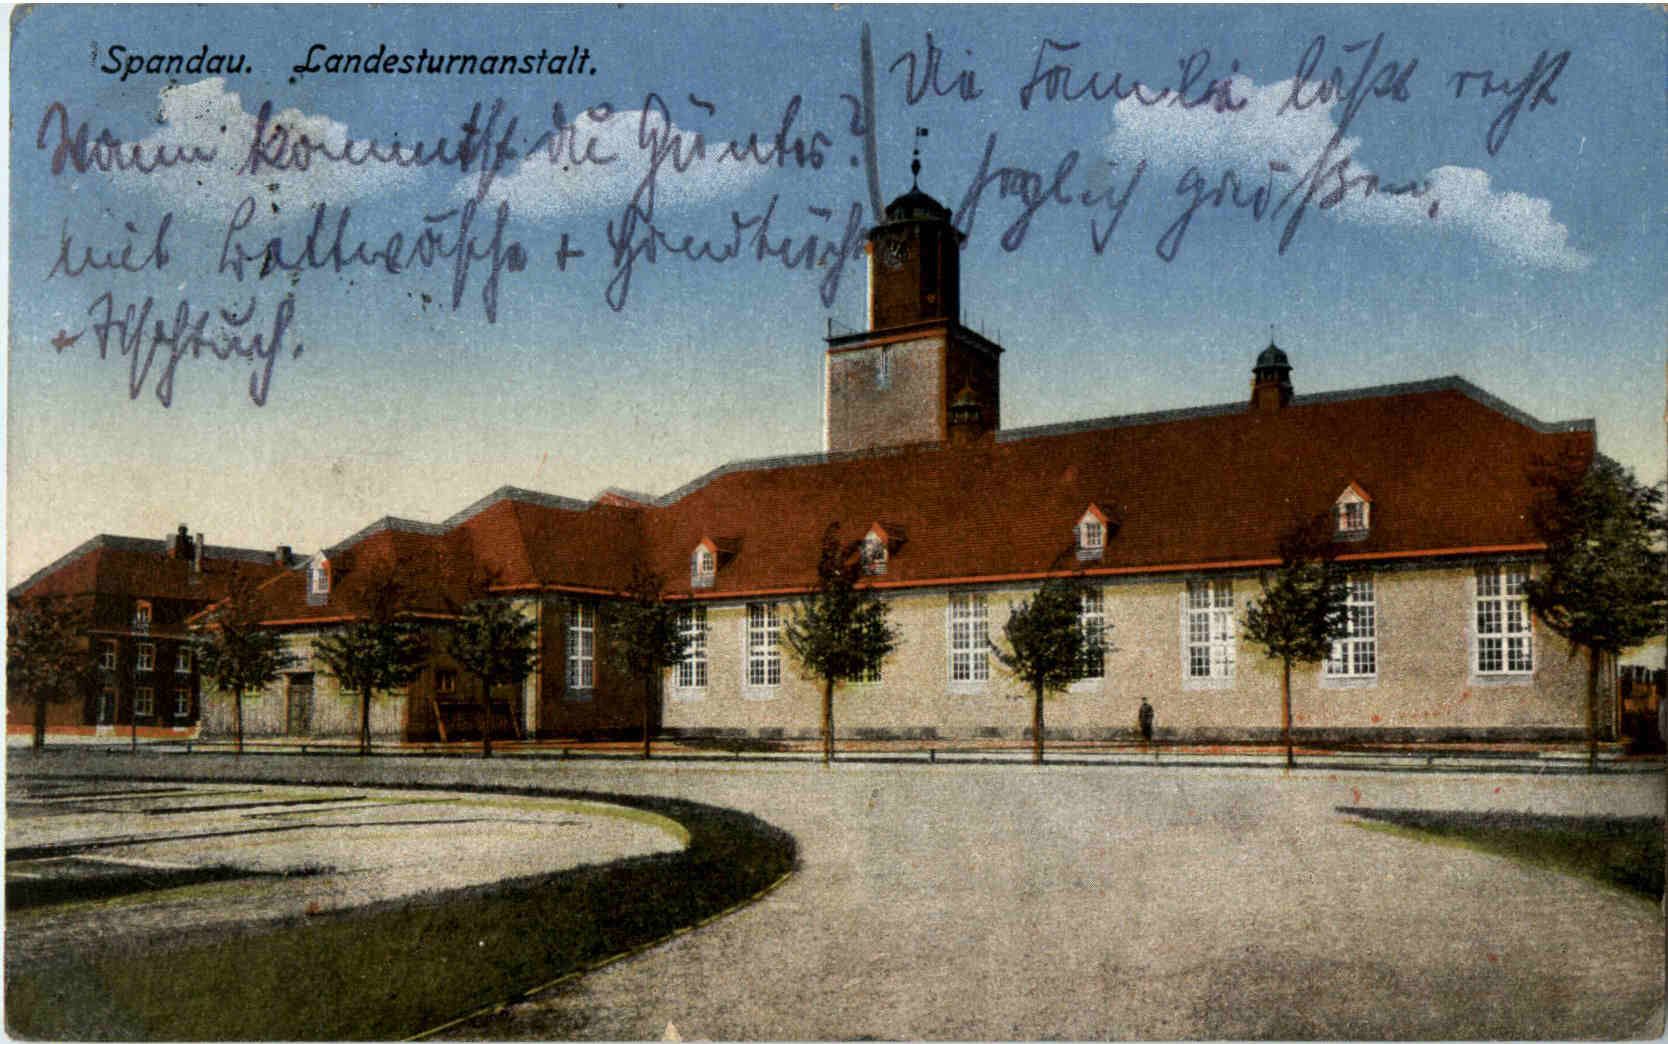 Spandau. Landesturnanstalt.
Wann kommst du Günter?
mit Bettwäsche + Handtücher
+ Tischtuch.
Die Familie läßt recht
herzlich grüßen.